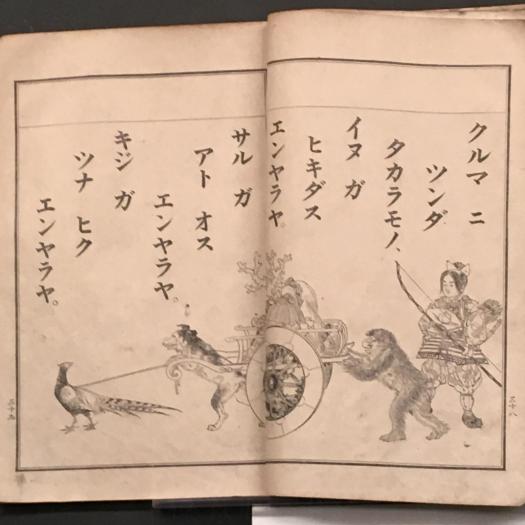 クルマ ニ
ツンダ
タカラモノ、
イヌ ガ
ヒキダス
エンヤラヤ。
サル ガ
アト オス
エンヤラヤ。
キジ ガ
ツナ ヒク
エンヤラヤ。
三十八
三十九